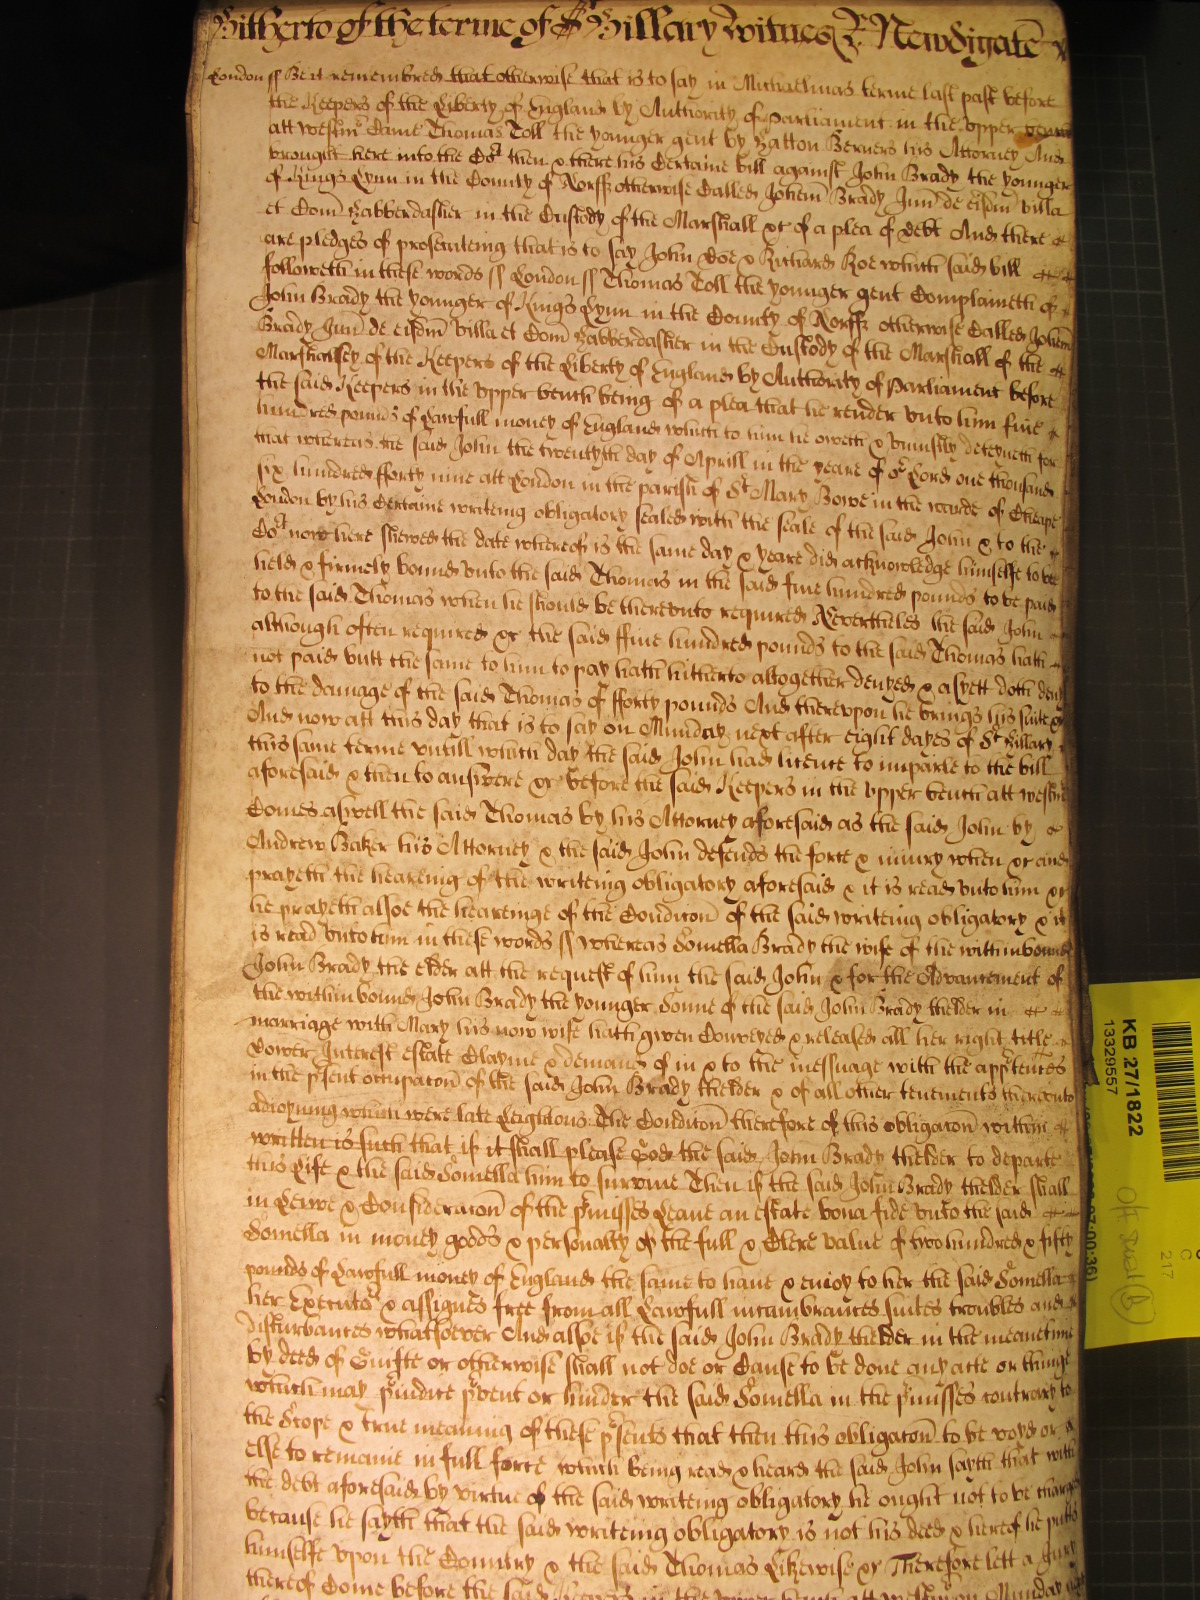 Hitherto of the terme of St Hillary witnes R Newdigate
London ss Be it remembred that otherwise that is to say in Michaelmas terme last past before
the Keepers of the Liberty of England by Authority of Parliament in the upper bench
att westm Came Thomas Toll the younger gent by Hatton Berners his Attorney And
brought here into the Cort then & there his Certaine bill against John Brady the younger
of Kings Lynn in the County of Norff otherwise Called Johem Brady Jun de eisdm villa
et Com Habberdasher in the Custody of the Marshall &c of a plea of debt And there
are pledges of prosecuteing that is to say John Doe & Richard Roe which said bill
followeth in these words ss London ss Thomas Toll the younger gent Complaineth of
John Brady the younger of Kings Lynn in the County of Norff otherwise Called Johem
Brady Jun de eisdm villa et Com Habberdasher in the Custody of the Marshall of the
Marshalsey of the Keepers of the Liberty of England by Authority of Parliament before
the said Keepers in the upper bench being of a plea that he render unto him five
hundred pounds of Lawfull money of England which to him he oweth & uniustly deteyneth for
that whereas the said John the twentyth day of Aprill in the yeare of or Lord one thousand
six hundred fforty nine att London in the parish of St Mary Bowe in the warde of Cheape
London by his Certaine writeing obligatory sealed with the seale of the said John & to the
Cort now here shewed the date whereof is the same day & yeare did acknowledge himselfe to be
held & firmely bound unto the said Thomas in the said five hundred pounds to be paid
to the said Thomas when he should be thereunto required Neverthelès the said John
although often required &c the said ffive hundred pounds to the said Thomas hath
not paid butt the same to him to pay hath hitherto altogether denyed & as yett doth deny
to the damage of the said Thomas of fforty pounds And thereupon he brings his suite &c
And now att this day that is to say on Munday next after eight dayes of St Hillary
this same terme untill which day the said John had licence to imparle to the bill
aforesaid & then to answere &c before the said Keepers in the upper bench att westm
Comes aswell the said Thomas by his Attorney aforesaid as the said John by
Andrew Baker his Attorney & the said John defends the force & iniury when &c and
prayeth the heareing of the writeing obligatory aforesaid & it is read unto him &c
he prayeth alsoe the heareinge of the Conditon of the said writeing obligatory & it
is read unto him in these words ss whereas Somella Brady the wife of the within bound
John Brady the elder att the request of him the said John & for the Advancement of
the within bound John Brady the younger Sonne of the said John Brady thelder in
marriage with Mary his now wife hath given Conveyed & released all her right title
Dower Interest estate Clayme & demand of in & to the messuage with the apptences
in the psent occupaton of the said John Brady thelder & of all other tenements thereunto
adioyning which were late Leightons The Conditon therefore of this obligaton within
written is such that if it shall please God the said John Brady thelder to departe
this Life & the said Somella him to survive Then if the said John Brady thelder shall
in Leiwe & Consideraion of the pmisses Leave an estate bona fide unto the said
Somella in money goods & personalty of the full & Clere value of two hundred & fifty
pounds of Lawfull money of England the same to have & enioy to her the said Somella
her Executors & assignes free from all Lawfull incumbrances suites troubles and
disturbances whatsoever And alsoe if the said John Brady thelder in the meanetime
by deed of Guifte or otherwise shall not doe or Cause to be done any acte or thinge
which may piudice pvent or hinder the said Somella in the pmisses contrary to
the Scope & true meaning of these psents that then this obligaton to be voyd or
else to remaine in full force which being read & heard the said John sayth that with
the debt aforesaid by virtue of the said writeing obligatory he ought not to be charged
because he sayth that the said writeing obligatory is not his deed & hereof he putts
himselfe upon the Countrey & the said Thomas Likewise &c Therefore lett a Jury
thereof Come before the said Keepers in the upper bench att westm on Munday
KB 27/1822
13329557
217
C